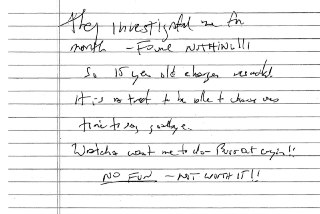 They investigated me for
month - Found NOTHING!!!
So 15 year old charges resulted
It is a treat to be able to choose
time to say goodbye.
Watcha want me to do - Burst out cryin!!
NO FUN - NOT WORTH IT!!